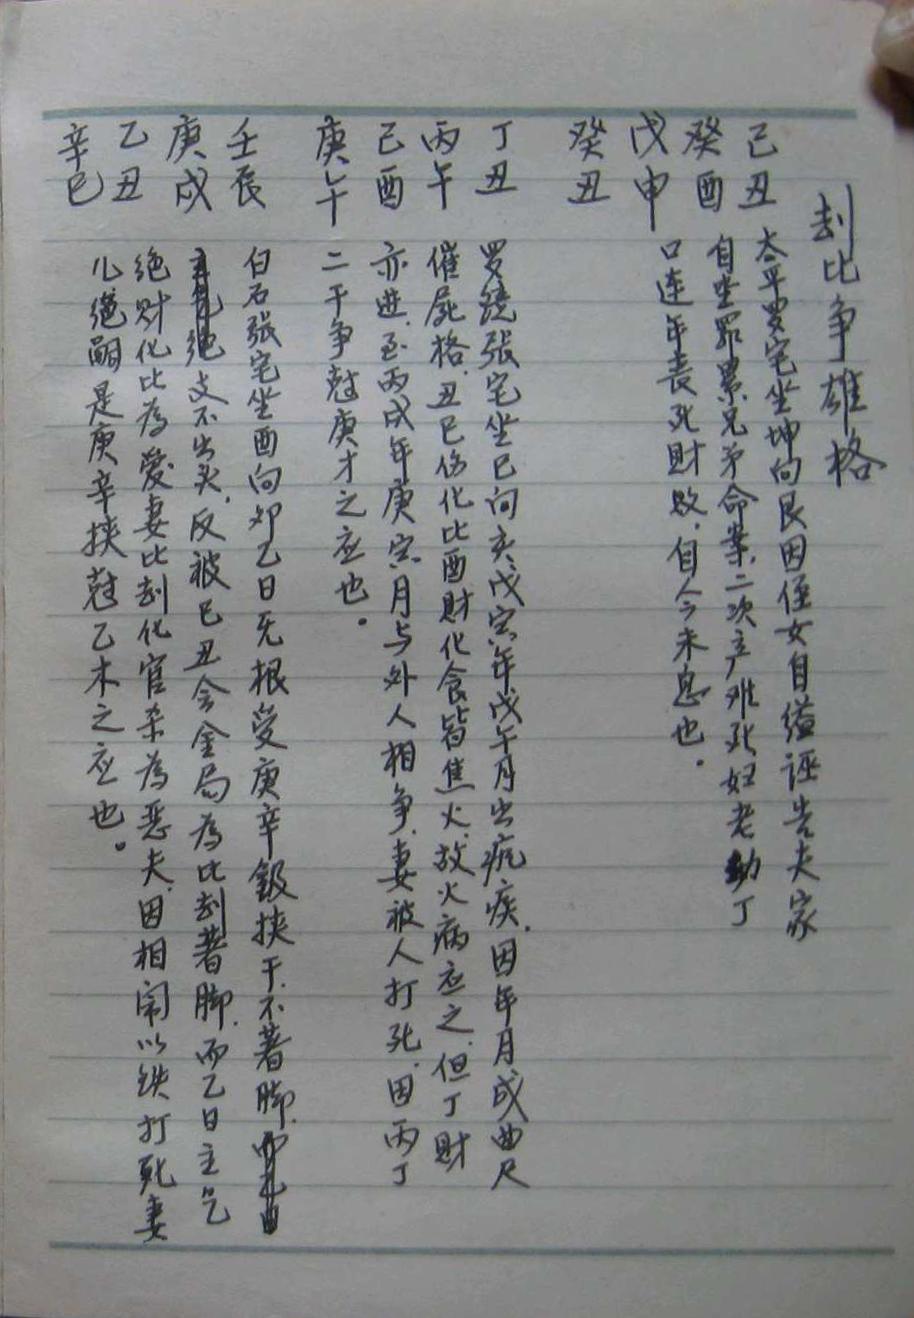 刦比争雄格
己丑 太平罗宅坐坤向艮因侄女自缢诬告夫家
癸酉 自坐罪累兄弟命案,二次产难死妇老勤丁
戊申 口连年丧死財败,自今未息也。
癸丑
丁丑 罗绕张宅坐巳向亥,戊寅年戊午月出疯疾,因年月成曲尺
丙午 催屍格,丑巳伤化比酉財化食皆焦火,故火病应之,但丁財
己酉 亦进,至丙戌年庚寅月与外人相争,妻被人打死,因丙丁
庚午 二干争尅庚才之应也。
壬辰 白石張宅坐酉向夘乙日无根受庚辛鈒挾干,不著脚,
庚戌 绝支不出亥,反被巳丑会金局為比刦著脚,而乙日主气
乙丑 绝財化比為爱妻比刦化官杀為恶夫,因相閙以铁打死妻
辛巳 儿绝嗣是庚辛挾尅乙木之应也。